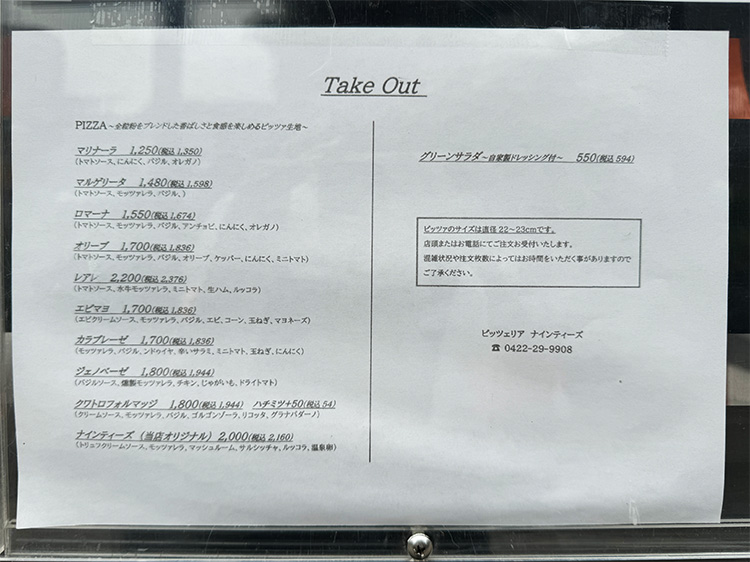 Take Out
PIZZA～全粒粉をブレンドした香ばしさと食感を楽しめるピッツァ生地～
マリナーラ 1,250(税込1,350)
（トマトソース、にんにく、バジル、オレガノ）
マルゲリータ 1,480(税込1,598)
（トマトソース、モッツァレラ、バジル、）
ロマーナ 1,550(税込1,674)
（トマトソース、モッツァレラ、バジル、アンチョビ、にんにく、オレガノ）
オリーブ 1,700(税込1,836)
（トマトソース、モッツァレラ、バジル、オリーブ、ケッパー、にんにく、ミニトマト）
レアレ 2,200(税込2,376)
（トマトソース、水牛モッツァレラ、ミニトマト、生ハム、ルッコラ）
エビマヨ 1,700(税込1,836)
（エビクリームソース、モッツァレラ、バジル、エビ、コーン、玉ねぎ、マヨネーズ）
カラブレーゼ 1,700(税込1,836)
（モッツァレラ、バジル、ンドゥイヤ、辛いサラミ、ミニトマト、玉ねぎ、にんにく）
ジェノベーゼ 1,800(税込1,944)
（バジルソース、燻製モッツァレラ、チキン、じゃがいも、ドライトマト）
クワトロフォルマッジ 1,800(税込1,944) ハチミツ+50(税込54)
（クリームソース、モッツァレラ、バジル、ゴルゴンゾーラ、リコッタ、グラナパダーノ）
ナインティーズ（当店オリジナル）2,000(税込2,160)
（トリュフクリームソース、モッツァレラ、マッシュルーム、サルシッチャ、ルッコラ、温泉卵）
グリーンサラダ～自家製ドレッシング付～ 550(税込594)
ピッツァのサイズは直径22～23cmです。
店頭またはお電話にてご注文お受付いたします。
混雑状況や注文枚数によってはお時間をいただく事がありますので
ご了承ください。
ピッツェリア ナインティーズ
☎ 0422-29-9908